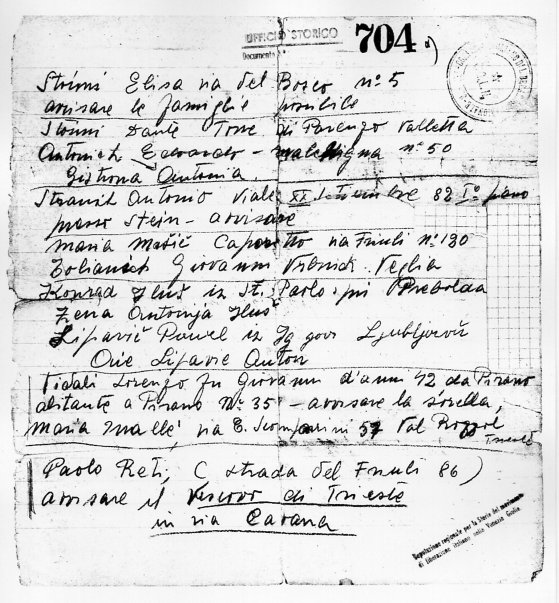 UFFICIO STORICO
Documento n°
704 a)
Elisa via del Bosco n° 5
avvisare le famiglie possibile
Dante Torre di Parenzo Valletta
Antonich Edoardo - n° 50
Antonia.
Antonio Viale XX Settembre 82 I° piano
presso Stein - avvisare
Maria Mašič Caporetto via Friuli n° 130
Giovanni Vrbnick. Veglia
Konrad Iluš iz St. Paolo pri Prebolda
Žena Antonija Iluš
Lipavič Pavel iz Ig gori Ljubljani
Oče Lipavic Anton
Vidali Lorenzo fu Giovanni d'anni 42 da Pirano
abitante a Pirano N° 35 - avvisare la sorella,
Maria via E. 57 Val Rozzol
Trieste
Paolo Reti, (strada del Friuli 86)
avvisare il Vescovo di Trieste
in via Cavana
Deputazione regionale per la Storia del movimento
di liberazione italiano nella Venezia Giulia